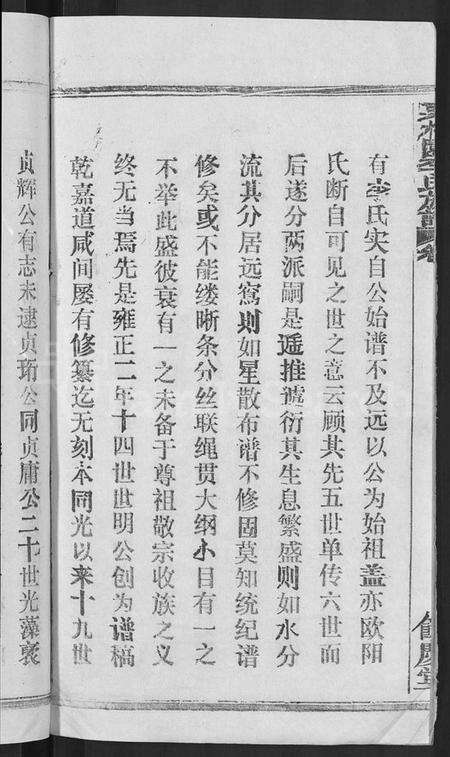 有李氏实自公始谱不及远以公为始祖盖亦欧阳
氏断自可见之世之意云顾其先五世单传六世而
后遂分两派嗣是遥推递衍其生息繁盛则如水分
流其分居远窎则如星散布谱不修固莫知统纪谱
修矣或不能缕晰条分丝联绳贯大纲小目有一之
不举此盛彼衰有一之未备于尊祖敬宗收族之义
终无当焉先是雍正二年十四世世明公创为谱稿
乾嘉道咸间屡有修纂迄无刻本同光以来十九世
贞辉公有志未逮贞珩公同贞庸公二十世光藻褎
余庆堂